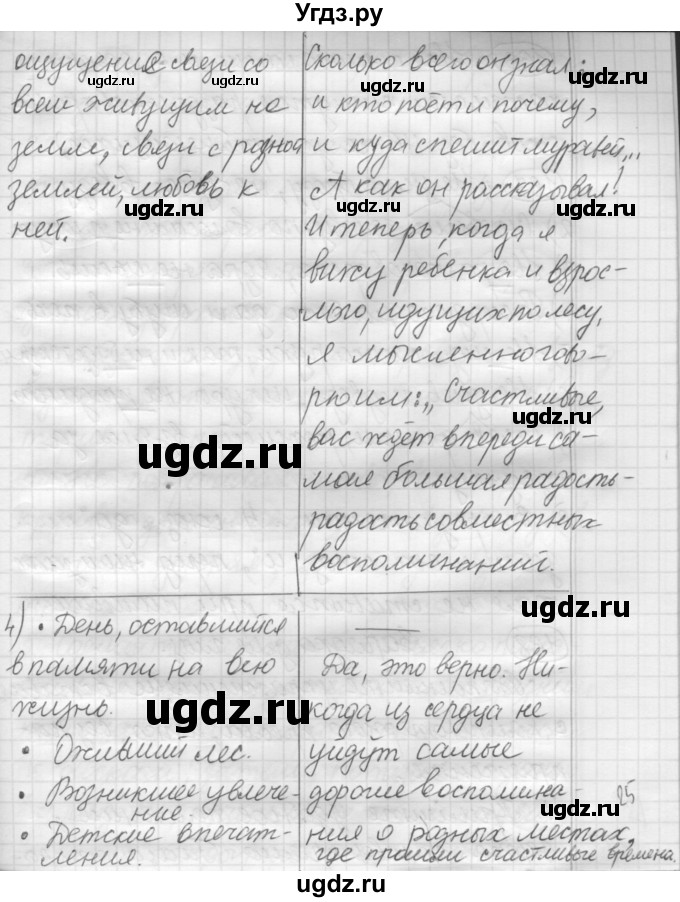 Угдз.ру
ощущения связи со
всем живущим на
земле, связи с родной
землей, любовь к
ней.
Сколько всего он знал:
и кто поёт и почему,
и куда спешит муравей...
А как он рассказывал!
И теперь, когда я
вижу ребенка и взрос-
лого, идущих по лесу,
я мысленно гово-
рю им: „Счастливые,
вас ждёт впереди са-
мая большая радость -
радость совместных
воспоминаний.
4) • День, оставшийся
в памяти на всю
жизнь.
• Оживший лес.
• Возникшее увлече-
ние.
• Детские впечат-
ления.
Да, это верно. Ни-
когда из сердца не
уйдут самые
дорогие воспомина-
ния о родных местах,
где прошли счастливые времена.
25
ugdz.ru
ugdz.ru
ugdz.ru
ugdz.ru
ugdz.ru
ugdz.ru
ugdz.ru
ugdz.ru
ugdz.ru
ugdz.ru
ugdz.ru
ugdz.ru
ugdz.ru